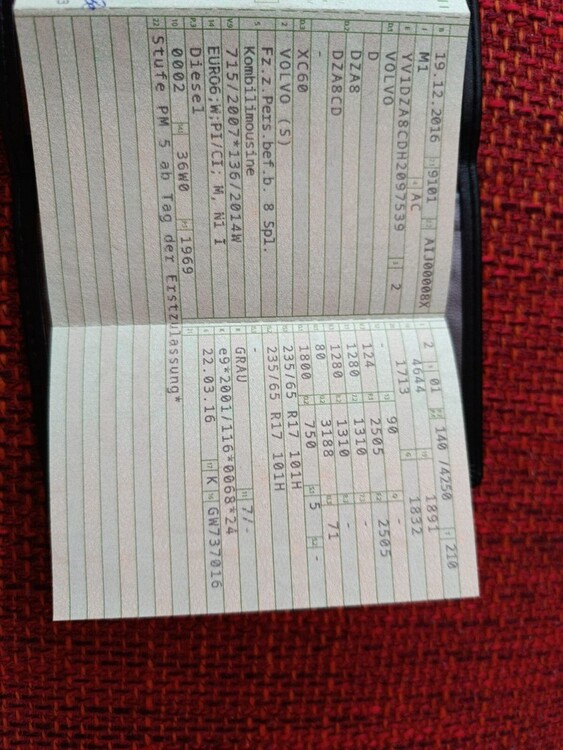 19.12.2016 9101 AIJ00008X
M1 AC
YV1DZA8CDH2097539 2
VOLVO
D
DZA8
DZA8CD
-
XC60
VOLVO (S)
Fz.z.Pers.bef.b. 8 Spl.
Kombilimousine
715/2007*136/2014W
EURO6;W;PI/CI; M, N1 I
Diesel
0002 36W0 1969
Stufe PM 5 ab Tag der Erstzulassung*
2 01 140 /4250 210
4644 1891
1713 1832
- 90 -
124 2505 2505
1280 1310 -
1280 1310 -
80 3188 71
1800 750 5 -
235/65 R17 101H
235/65 R17 101H
-
GRAU 7/-
e9*2001/116*0068*24
22.03.16 K GW737016